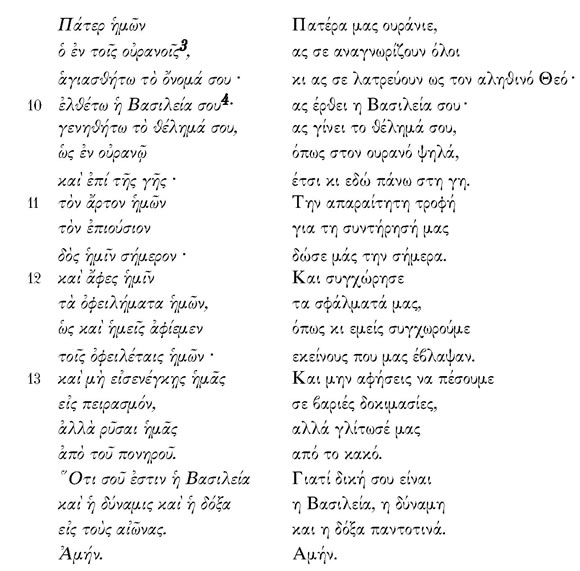 Πάτερ ἡμῶν
ὁ ἐν τοῖς οὐρανοῖς³,
ἁγιασθήτω τὸ ὄνομά σου ·
10 ἐλθέτω ἡ Βασιλεία σου⁴·
γενηθήτω τὸ θέλημά σου,
ὡς ἐν οὐρανῷ
καὶ ἐπί τῆς γῆς ·
11 τὸν ἄρτον ἡμῶν
τὸν ἐπιούσιον
δὸς ἡμῖν σήμερον ·
12 καὶ ἄφες ἡμῖν
τὰ ὀφειλήματα ἡμῶν,
ὡς καὶ ἡμεῖς ἀφίεμεν
τοῖς ὀφειλέταις ἡμῶν ·
13 καὶ μὴ εἰσενέγκῃς ἡμᾶς
εἰς πειρασμόν,
ἀλλὰ ρῦσαι ἡμᾶς
ἀπὸ τοῦ πονηροῦ.
Ὅτι σοῦ ἐστιν ἡ Βασιλεία
καὶ ἡ δύναμις καὶ ἡ δόξα
εἰς τοὺς αἰῶνας.
Ἀμήν.
Πατέρα μας ουράνιε,
ας σε αναγνωρίζουν όλοι
κι ας σε λατρεύουν ως τον αληθινό Θεό ·
ας έρθει η Βασιλεία σου ·
ας γίνει το θέλημά σου,
όπως στον ουρανό ψηλά,
έτσι κι εδώ πάνω στη γη.
Την απαραίτητη τροφή
για τη συντήρησή μας
δώσε μάς την σήμερα.
Και συγχώρησε
τα σφάλματά μας,
όπως κι εμείς συγχωρούμε
εκείνους που μας έβλαψαν.
Και μην αφήσεις να πέσουμε
σε βαριές δοκιμασίες,
αλλά γλίτωσέ μας
από το κακό.
Γιατί δική σου είναι
η Βασιλεία, η δύναμη
και η δόξα παντοτινά.
Αμήν.